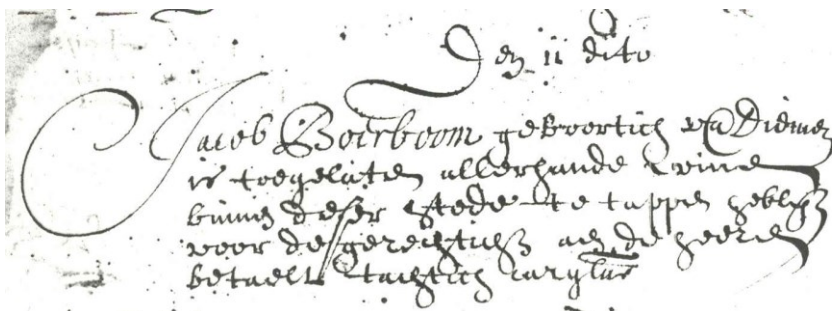 Den 11 dito
Jacob Boerboom geboortich van Diemen
is toegelaten allerhande wine
binnen deser stede te tappen
voor de gerechtich aen de heeren
betaelt tachtich car gls